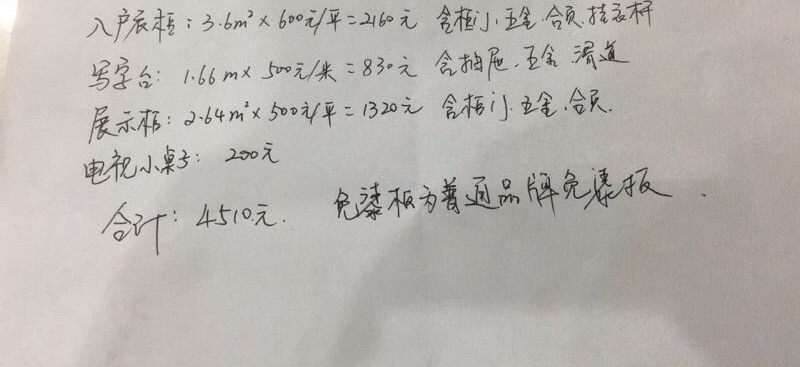 入户衣柜：3.6m²×600元/平=2160元 含柜门.五金.合页.挂衣杆
写字台：1.66m×500元/米=830元 含抽屉.五金.滑道
展示柜：2.64m²×500元/平=1320元 含柜门.五金.合页.
电视小桌子：200元
合计：4510元. 免漆板为普通品牌免漆板.